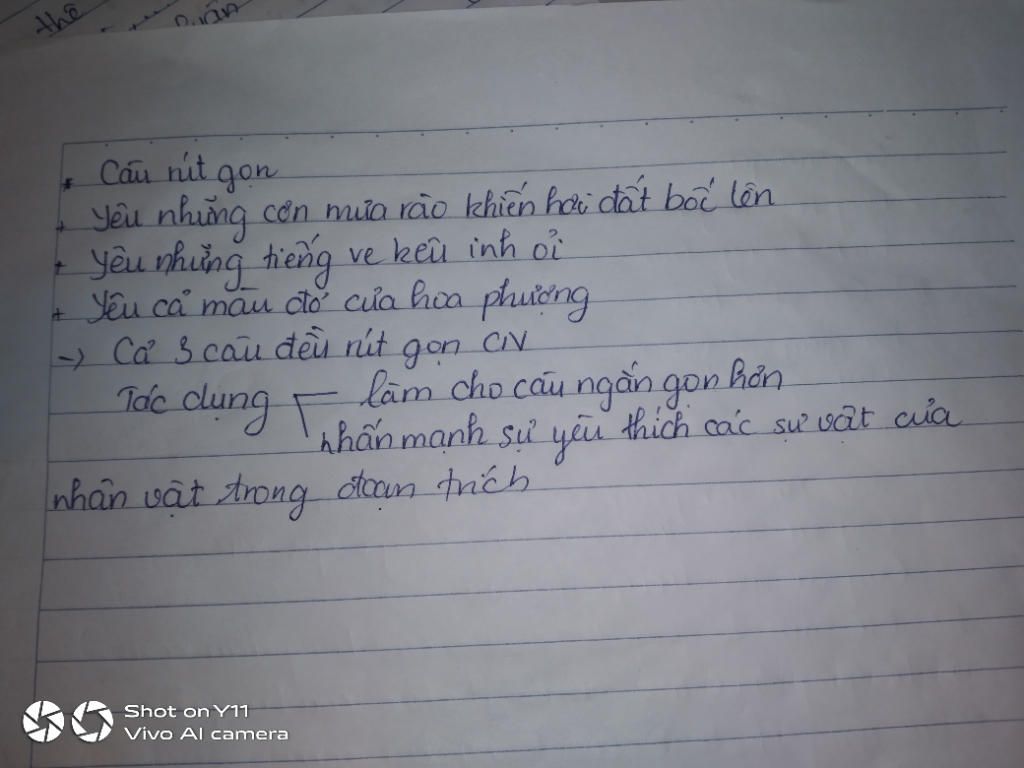 thê
* Câu rút gọn
+ Yêu những cơn mưa rào khiến hơi đất bốc lên
+ Yêu những tiếng ve kêu inh ỏi
+ Yêu cả màu đỏ của hoa phượng
-> Cả 3 câu đều rút gọn CN
Tác dụng làm cho câu ngắn gọn hơn
nhấn mạnh sự yêu thích các sự vật của
nhân vật trong đoạn trích
Shot on Y11
Vivo AI camera